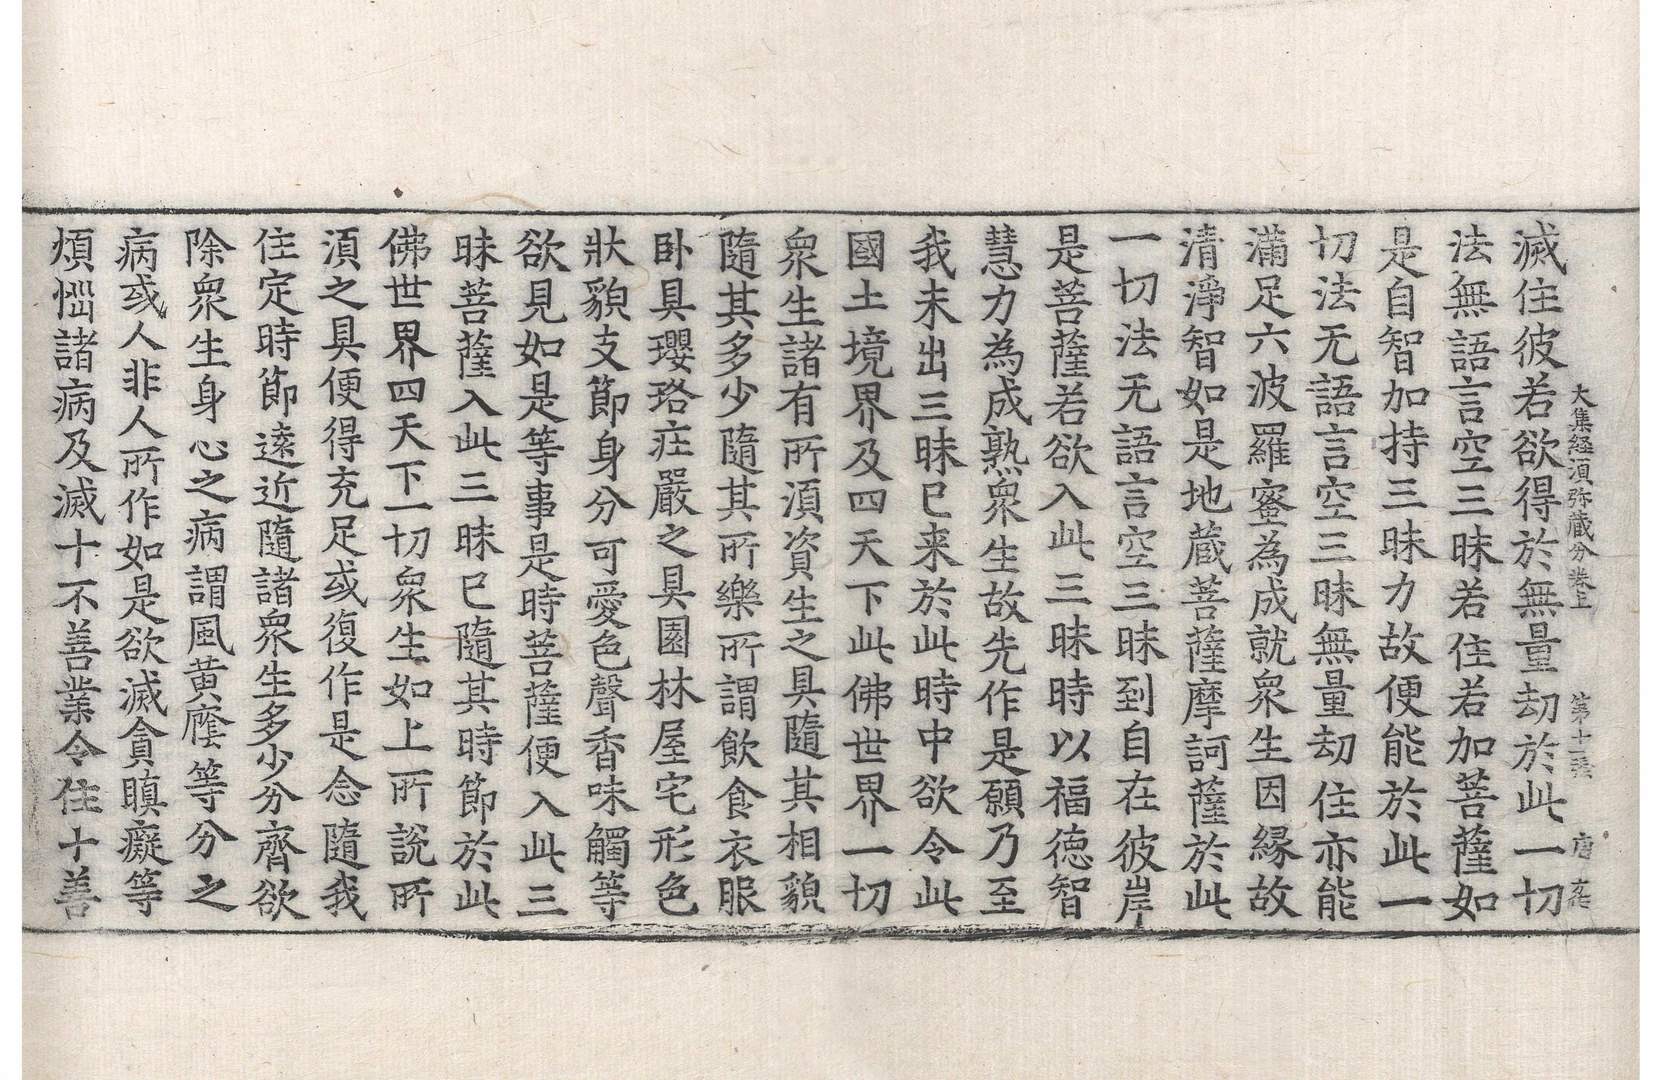 大集経湏弥藏分卷上 第十一張 唐
滅住彼若欲得於無量劫於此一切
法無語言空三昧若住若加菩薩如
是自智加持三昧力故便能於此一
切法无語言空三昧無量劫住亦能
滿足六波羅蜜為成就衆生因縁故
清淨智如是地蔵菩薩摩訶薩於此
一切法无語言空三昧到自在彼岸
是菩薩若欲入此三昧時以福徳智
慧力為成熟衆生故先作是願乃至
我未出三昧已来於此時中欲令此
國土境界及四天下此佛世界一切
衆生諸有所湏資生之具隨其相貌
隨其多少隨其所樂所謂飲食衣服
卧具瓔珞庄嚴之具園林屋宅形色
狀貌支節身分可愛色聲香味觸等
欲見如是等事是時菩薩便入此三
昧菩薩入此三昧已隨其時節於此
佛世界四天下一切衆生如上所說所
湏之具便得充足或復作是念隨我
住定時節遠近隨諸衆生多少分齊欲
除衆生身心之病謂風黄癊等分之
病或人非人所作如是欲滅貪瞋癡等
煩惱諸病及滅十不善業令住十善